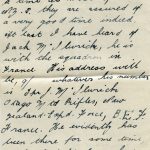 they are assured of
a very good time indeed
At last I have heard of
Jack McIlwrick, he is
with the squadron in
France. His address will
be, whatever his number
is Tpr J. McIlwrick
Otago Mtd Rifles, New
Zealand Expd. Force, B.E.F
France. He evidently has
been there for some time